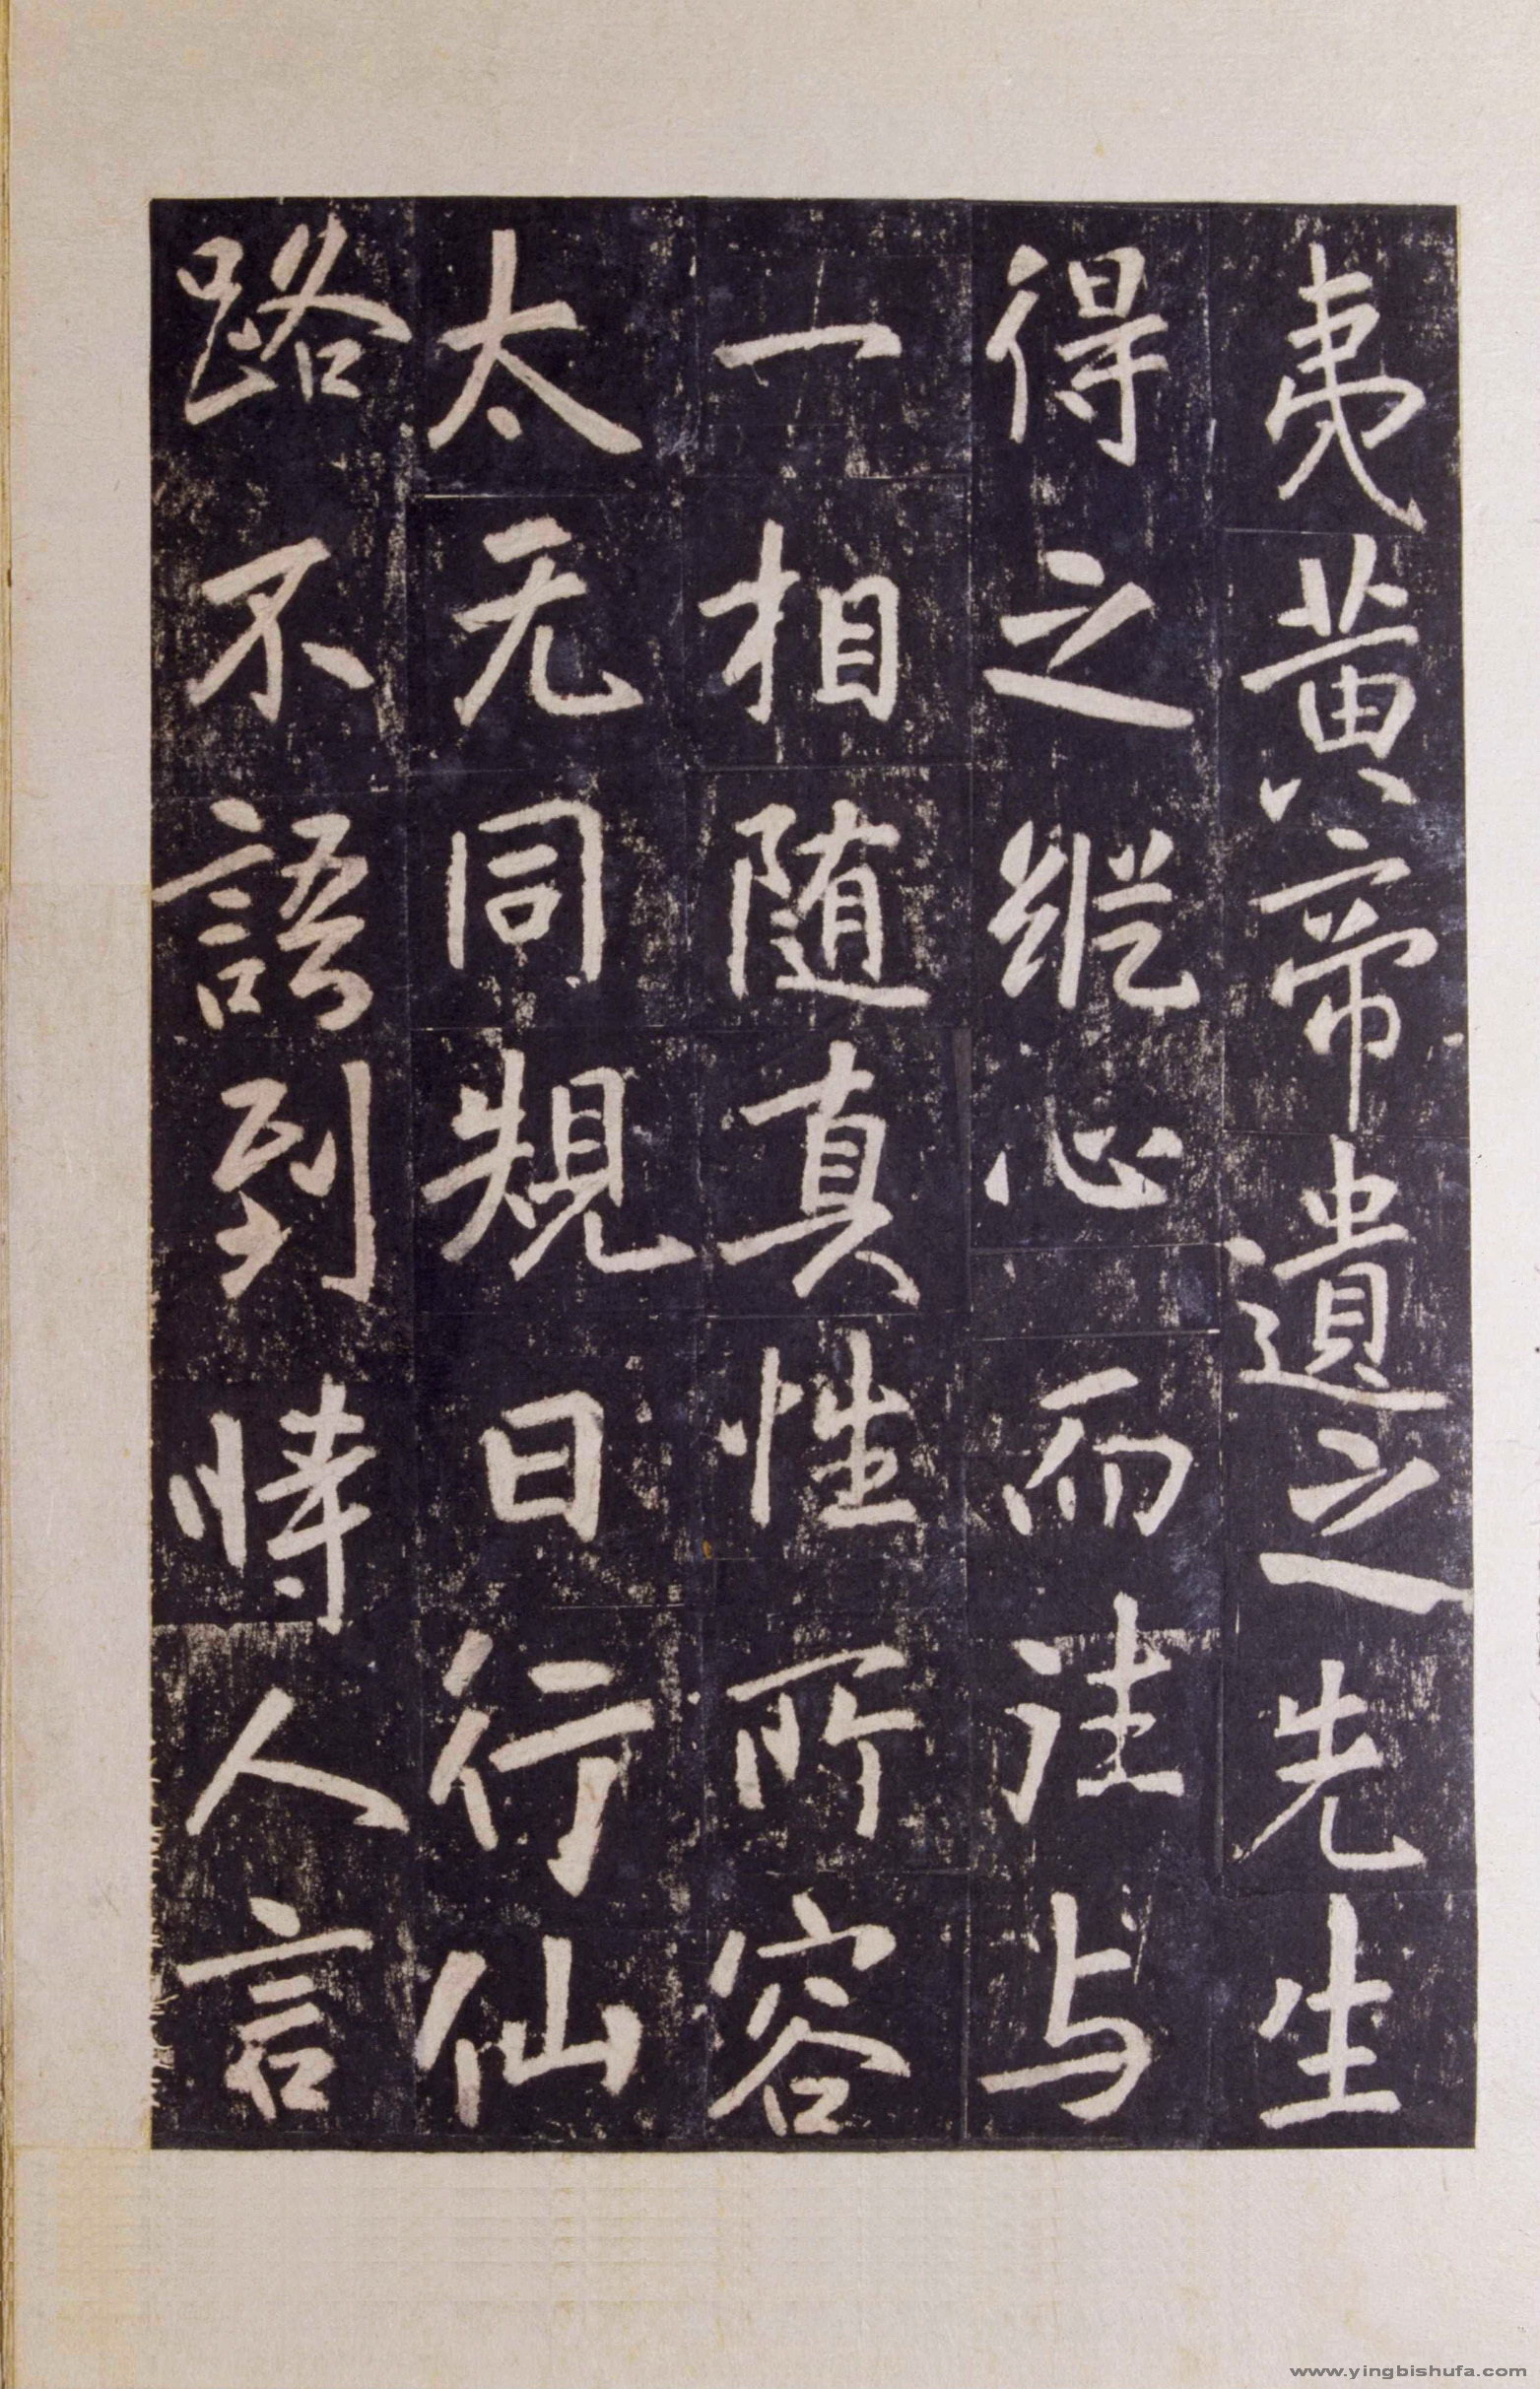 夷黄帝遺之先生
得之縱心而往与
一相随真性所容
太无同規日行仙
路不語到時人言
www.yingbishufa.com